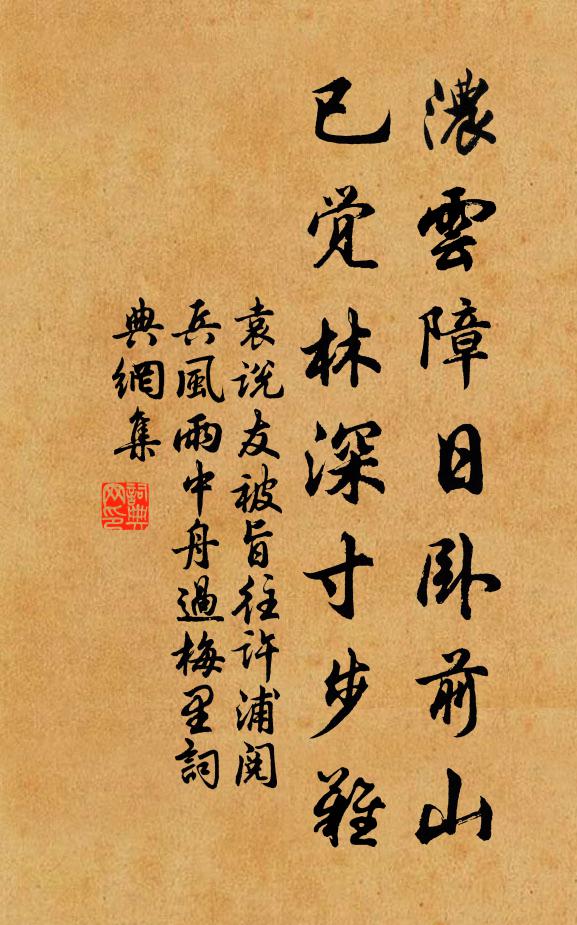 濃雲障日卧前山
已覚林深寸步難
袁說友被旨往許浦閱
兵風雨中舟過梅里詞
典網集
詞典网印